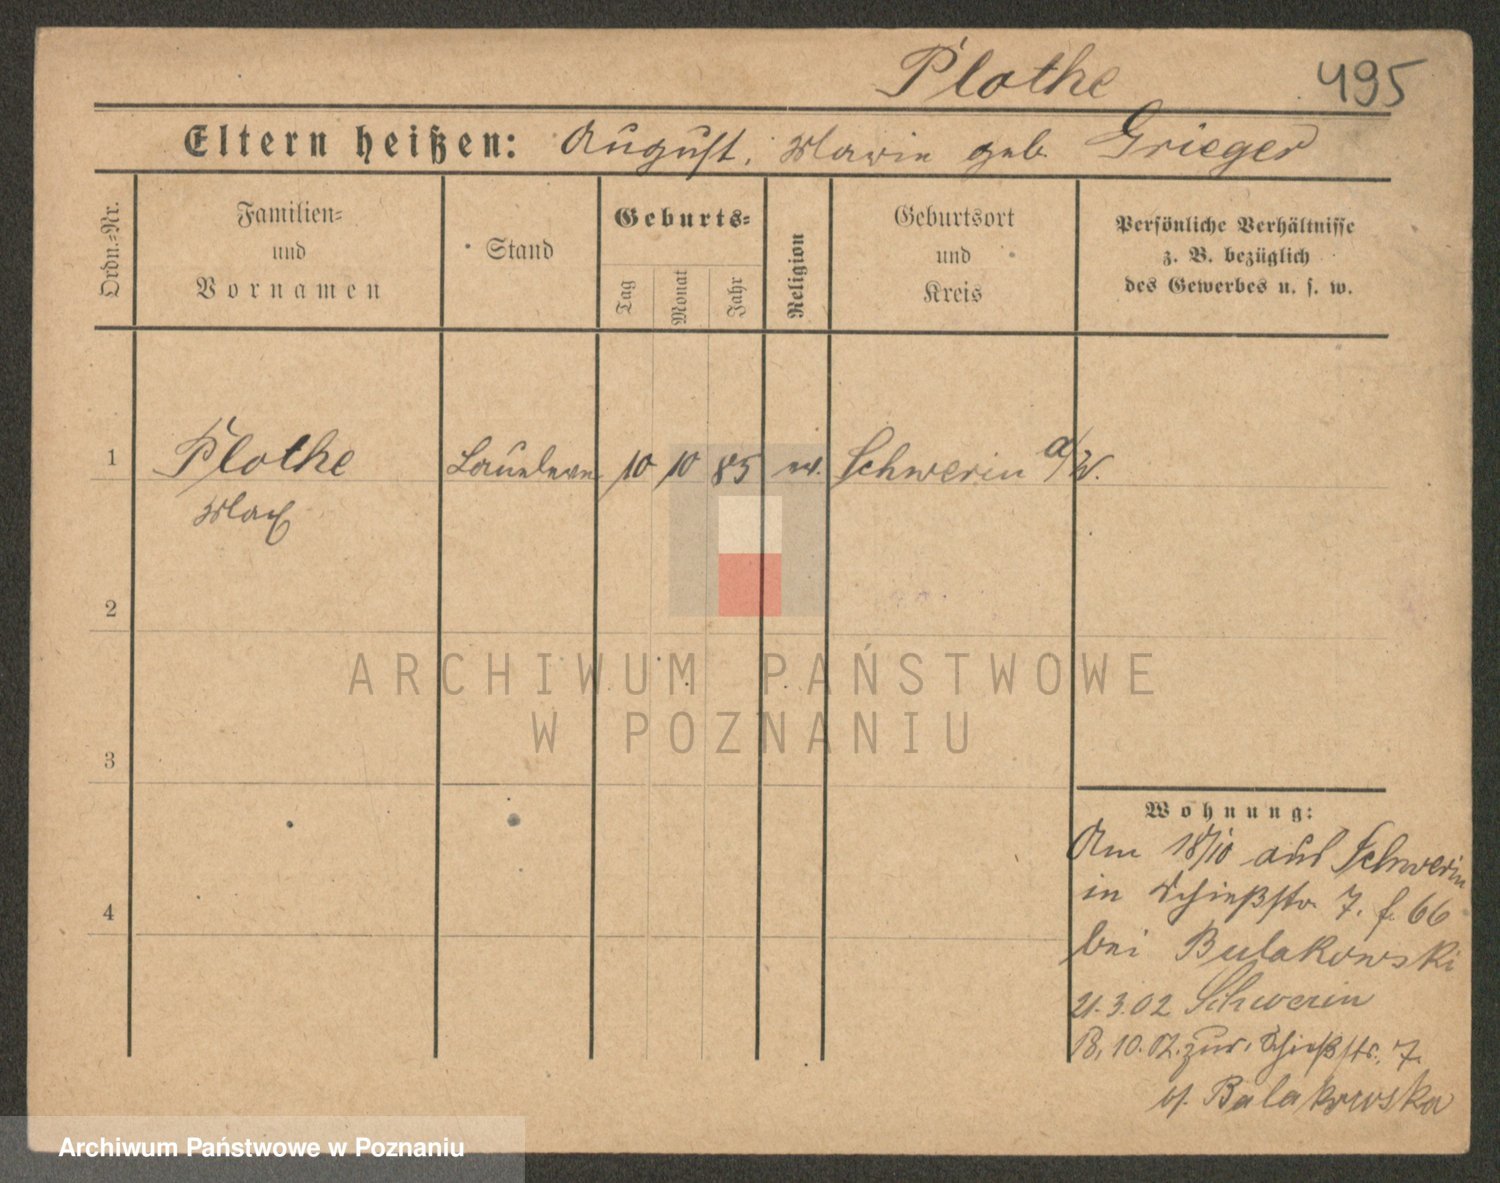 Plothe 495
Eltern heißen: August, Marie geb. Grieger
Ordn.-Nr.
Familien-
und
Vornamen
Stand
Geburts-
Tag
Monat
Jahr
Religion
Geburtsort
und
Kreis
Persönliche Verhältnisse
z. B. bezüglich
des Gewerbes u. s. w.
1 Plothe 10 10 85 ev. Schwerin a/W.
Max
2
3
4
ARCHIWUM PAŃSTWOWE
W POZNANIU
Wohnung:
Am 18/10 aus Schwerin
in Schießstr 7. f. 66
bei Bulakowski
21.3.02 Schwerin
10.02. zur. Schießstr. 7.
b/. Bulakowska
Archiwum Państwowe w Poznaniu